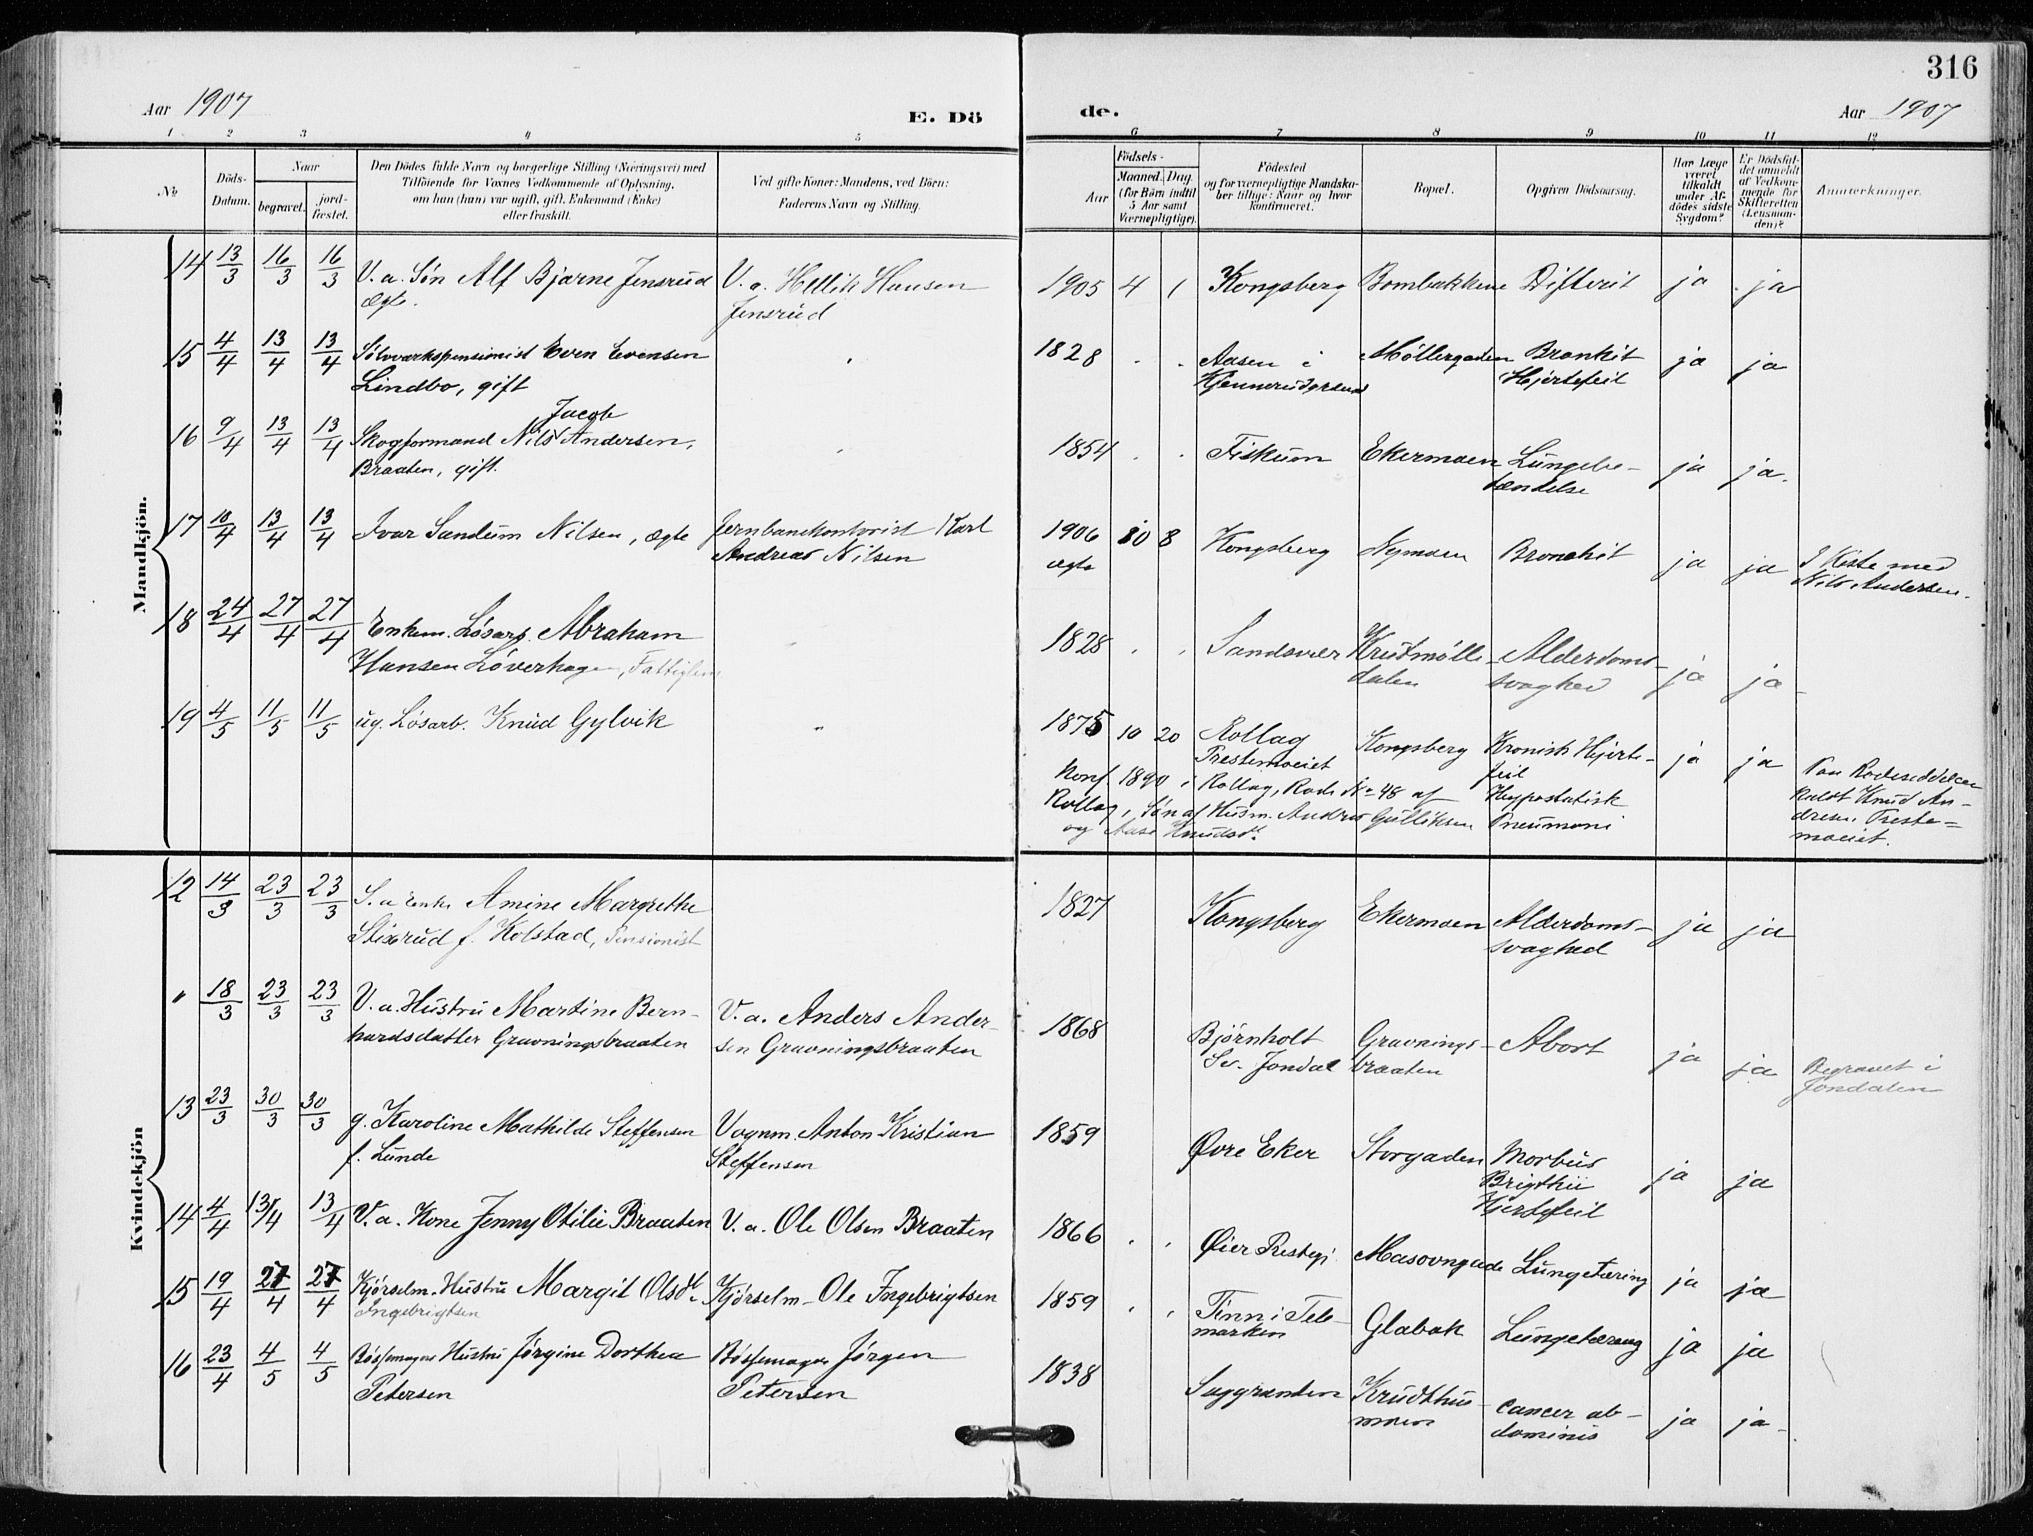 316
Aar 1907
E. Dö
de.
Aar 1907
1 2 3 4 5
6 7 8 9 10 11 12
No
Döds-
Datum.
Naar
begravet.
jord-
fæstet.
Den Dödes fulde Navn og borgerlige Stilling (Næringsvei) med
Tilföiende for Voxnes Vedkommende af Oplysning,
om hun (han) var ugift, gift, Enkemand (Enke)
eller fraskilt.
Ved gifte Koner: Mandens, ved Börn:
Faderens Navn og Stilling.
Födsels-
Aar
Maaned. Dag.
(for Börn indtil
5 Aar samt
Værnepligtige).
Födested
og for værnepligtige Mandska-
ber tillige: Naar og hvor
konfirmeret.
Bopæl.
Opgiven Dödsaarsag.
Har Læge
været
tilkaldt
under Af-
dödes sidste
Sygdom?
Er Dödsfal-
det anmeldt
af Vedkom-
mende for
Skifteretten
(Lensman-
den)?
Anmærkninger.
Mandkjön.
14 13/3 16/3 16/3 V. a. Søn Alf Bjarne Jensrud V. a. Hellik Hansen 1905 4 1 Kongsberg Bombakkene Difterit ja ja
ægte. Jensrud
15 4/4 13/4 13/4 Sølvværkspensionist Even Evensen 1828 Aasen i Møllergaden Bronkit ja ja
Lindbo, gift Hjertefeil
Jacob
16 9/4 13/4 13/4 Skogformand Nils Andersen, 1854 Fiskum Ekermoen Lungebe- ja ja.
Braaten, gift. tændelse
17 10/4 13/4 13/4 Ivar Sandum Nilsen, ægte Jernbanekontorist Karl 1906 10 8 Kongsberg Nymoen Bronchit ja ja I Kiste med
Andreas Nilsen ægte Nils Andersen.
18 24/4 27/4 27/4 Enkem. Løsarb. Abraham 1828 Sandsvær Krudmølle- Alderdoms- ja ja
Hansen Løverhagen, Fattiglem dalen svaghed
19 4/5 11/5 11/5 ug. Løsarb. Knud Gylvik 1875 10 20 Rollag Kongsberg Kronisk Hjerte- ja ja
Prestemoeiet feil Paa Rodeseddelen
Konf. 1890 i Rollag, Rode No 48 af Hypostatisk kaldt Knud An-
Rollag, Søn af Husm. Andres Gulliksen Pneumoni dresen Preste-
og Aase Knudsd. moeiet.
Kvindekjön
12 14/3 23/3 23/3 S. a Enke Amine Margrethe 1827 Kongsberg Ekermoen Alderdoms- ja ja
Stixrud f. Kolstad, Pensionist svaghed
" 18/3 23/3 23/3 V. a. Hustru Martine Bern- V. a. Anders Ander- 1868 Bjørnholt Gravnings- Abort ja ja Begravet i
hardsdatter Gravningsbraaten sen Gravningsbraaten Sv. Jondal braaten Jondalen
13 23/3 30/3 30/3 g. Karoline Mathilde Steffensen Vognm. Anton Kristian 1859 Øvre Eker Storgaden Morbus ja ja
f. Lunde Steffensen Brigthii
Hjertefeil
14 4/4 13/4 13/4 V. a. Kone Jenny Otilie Braaten V. a. Ole Olsen Braaten 1866 Øier Prestegj. Masovngade Lungetæring ja ja
15 19/4 27/4 27/4 Kjørselm. Hustru Margit Olsdt. Kjørselm. Ole Ingebrigtsen 1859 Tinn i Tele- Glabak Lungetæring ja ja
Ingebrigtsen marken
16 23/4 4/5 4/5 Bøssemagers Hustru Jørgine Dorthea Bøssemager Jørgen 1838 Saggrenden Krudthus- Cancer ab- ja ja
Petersen Petersen moen dominis